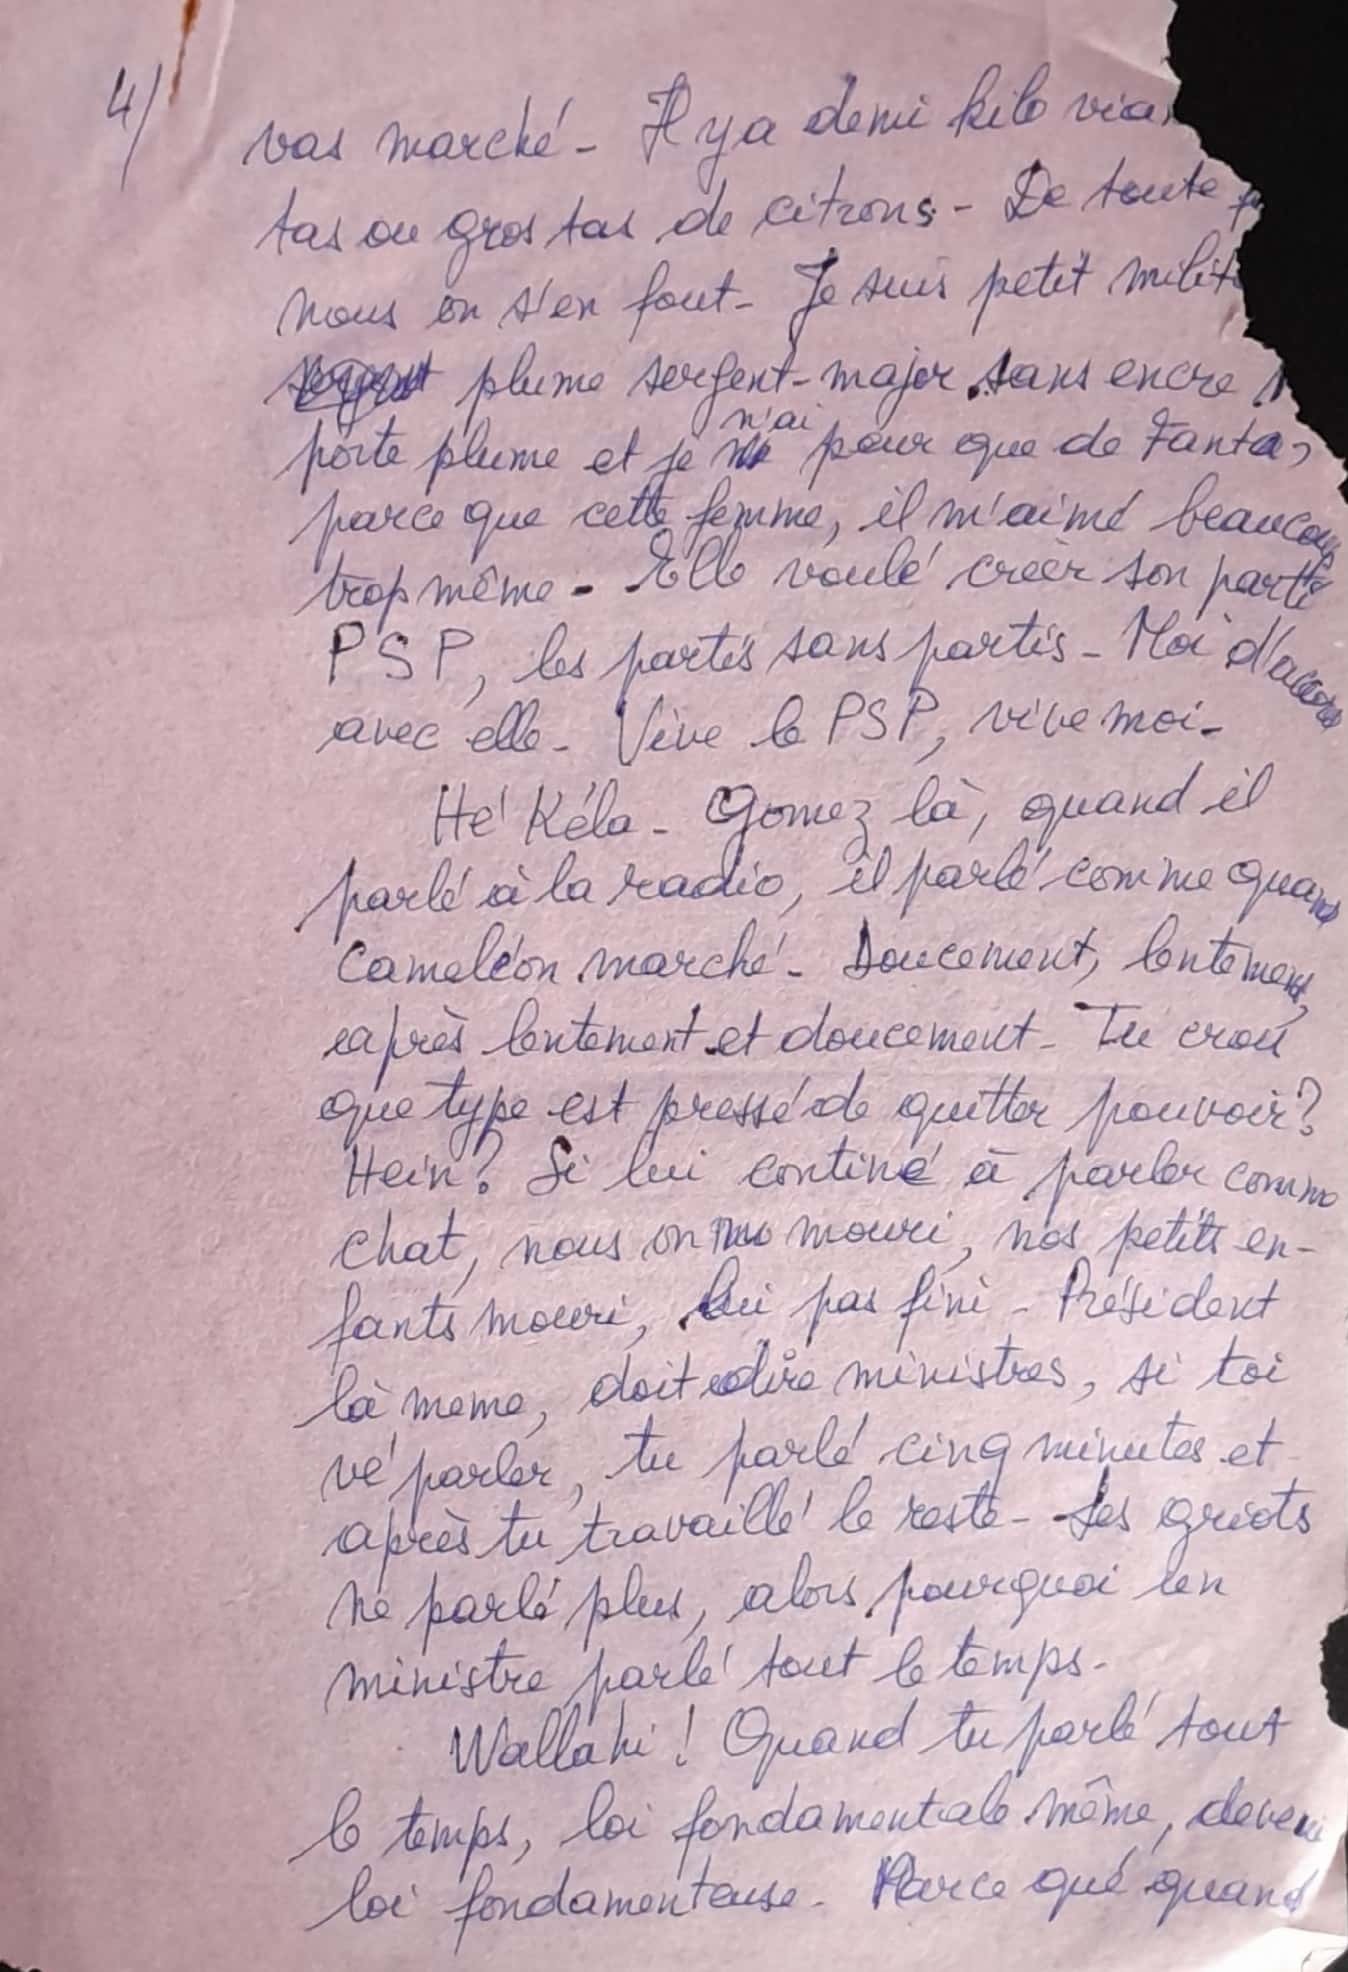 4/
vas marché - Il y a demi kilo
tas ou gros tas de citrons - De toute
nous on s'en fout - Je suis petit
plume sergent-major sans encre
n'ai
porte plume et je peur que de Fanta,
parce que cette femme, il m'aimé beaucoup
trop même - Elle voulé créer son parti
PSP, les partis sans partis - Moi d'accord
avec elle - Vive le PSP, vive moi -
Hé Kéla - Gomez là, quand il
parlé à la radio, il parlé comme quand
Caméléon marché - Doucement, lentement,
après lentement et doucement - Tu croiï
que type est pressé de quitter pouvoir ?
Hein ? Si lui continé à parler comme
chat, nous on mouri, nos petits en-
fants mouri, lui pas fini - Président
là meme, doit dire ministres, si toi
vé parler, tu parlé cinq minutes et
après tu travaillé le reste - Les griots
ne parlé plus, alors pourquoi len
ministre parlé tout le temps -
Wallahi ! Quand tu parlé tout
le temps, loi fondamentale même, deveni
loi fondamenteuse - Parce qué quand